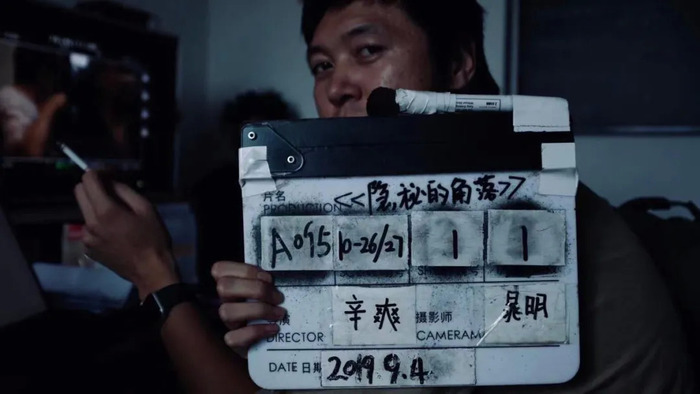 片名
PRODUCTION <<隐秘的角落>>
A075 10-26/27 1 1
演 辛爽 摄影师 晁明
DIRECTOR CAMERAM
DATE 日期 2019.9.4